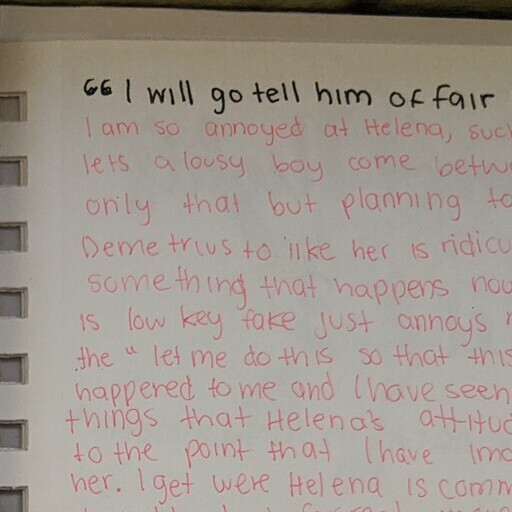 “ I will go tell him of fair
I am so annoyed at Helena, such
lets a lousy boy come betwe
only that but planning to
Demetrius to like her is ridicu
something that happens now
is low key fake just annoys
the " let me do this so that this
happered to me and I have seen
things that Helena's attitud
to the point that I have imo
her. I get were Helena is comm